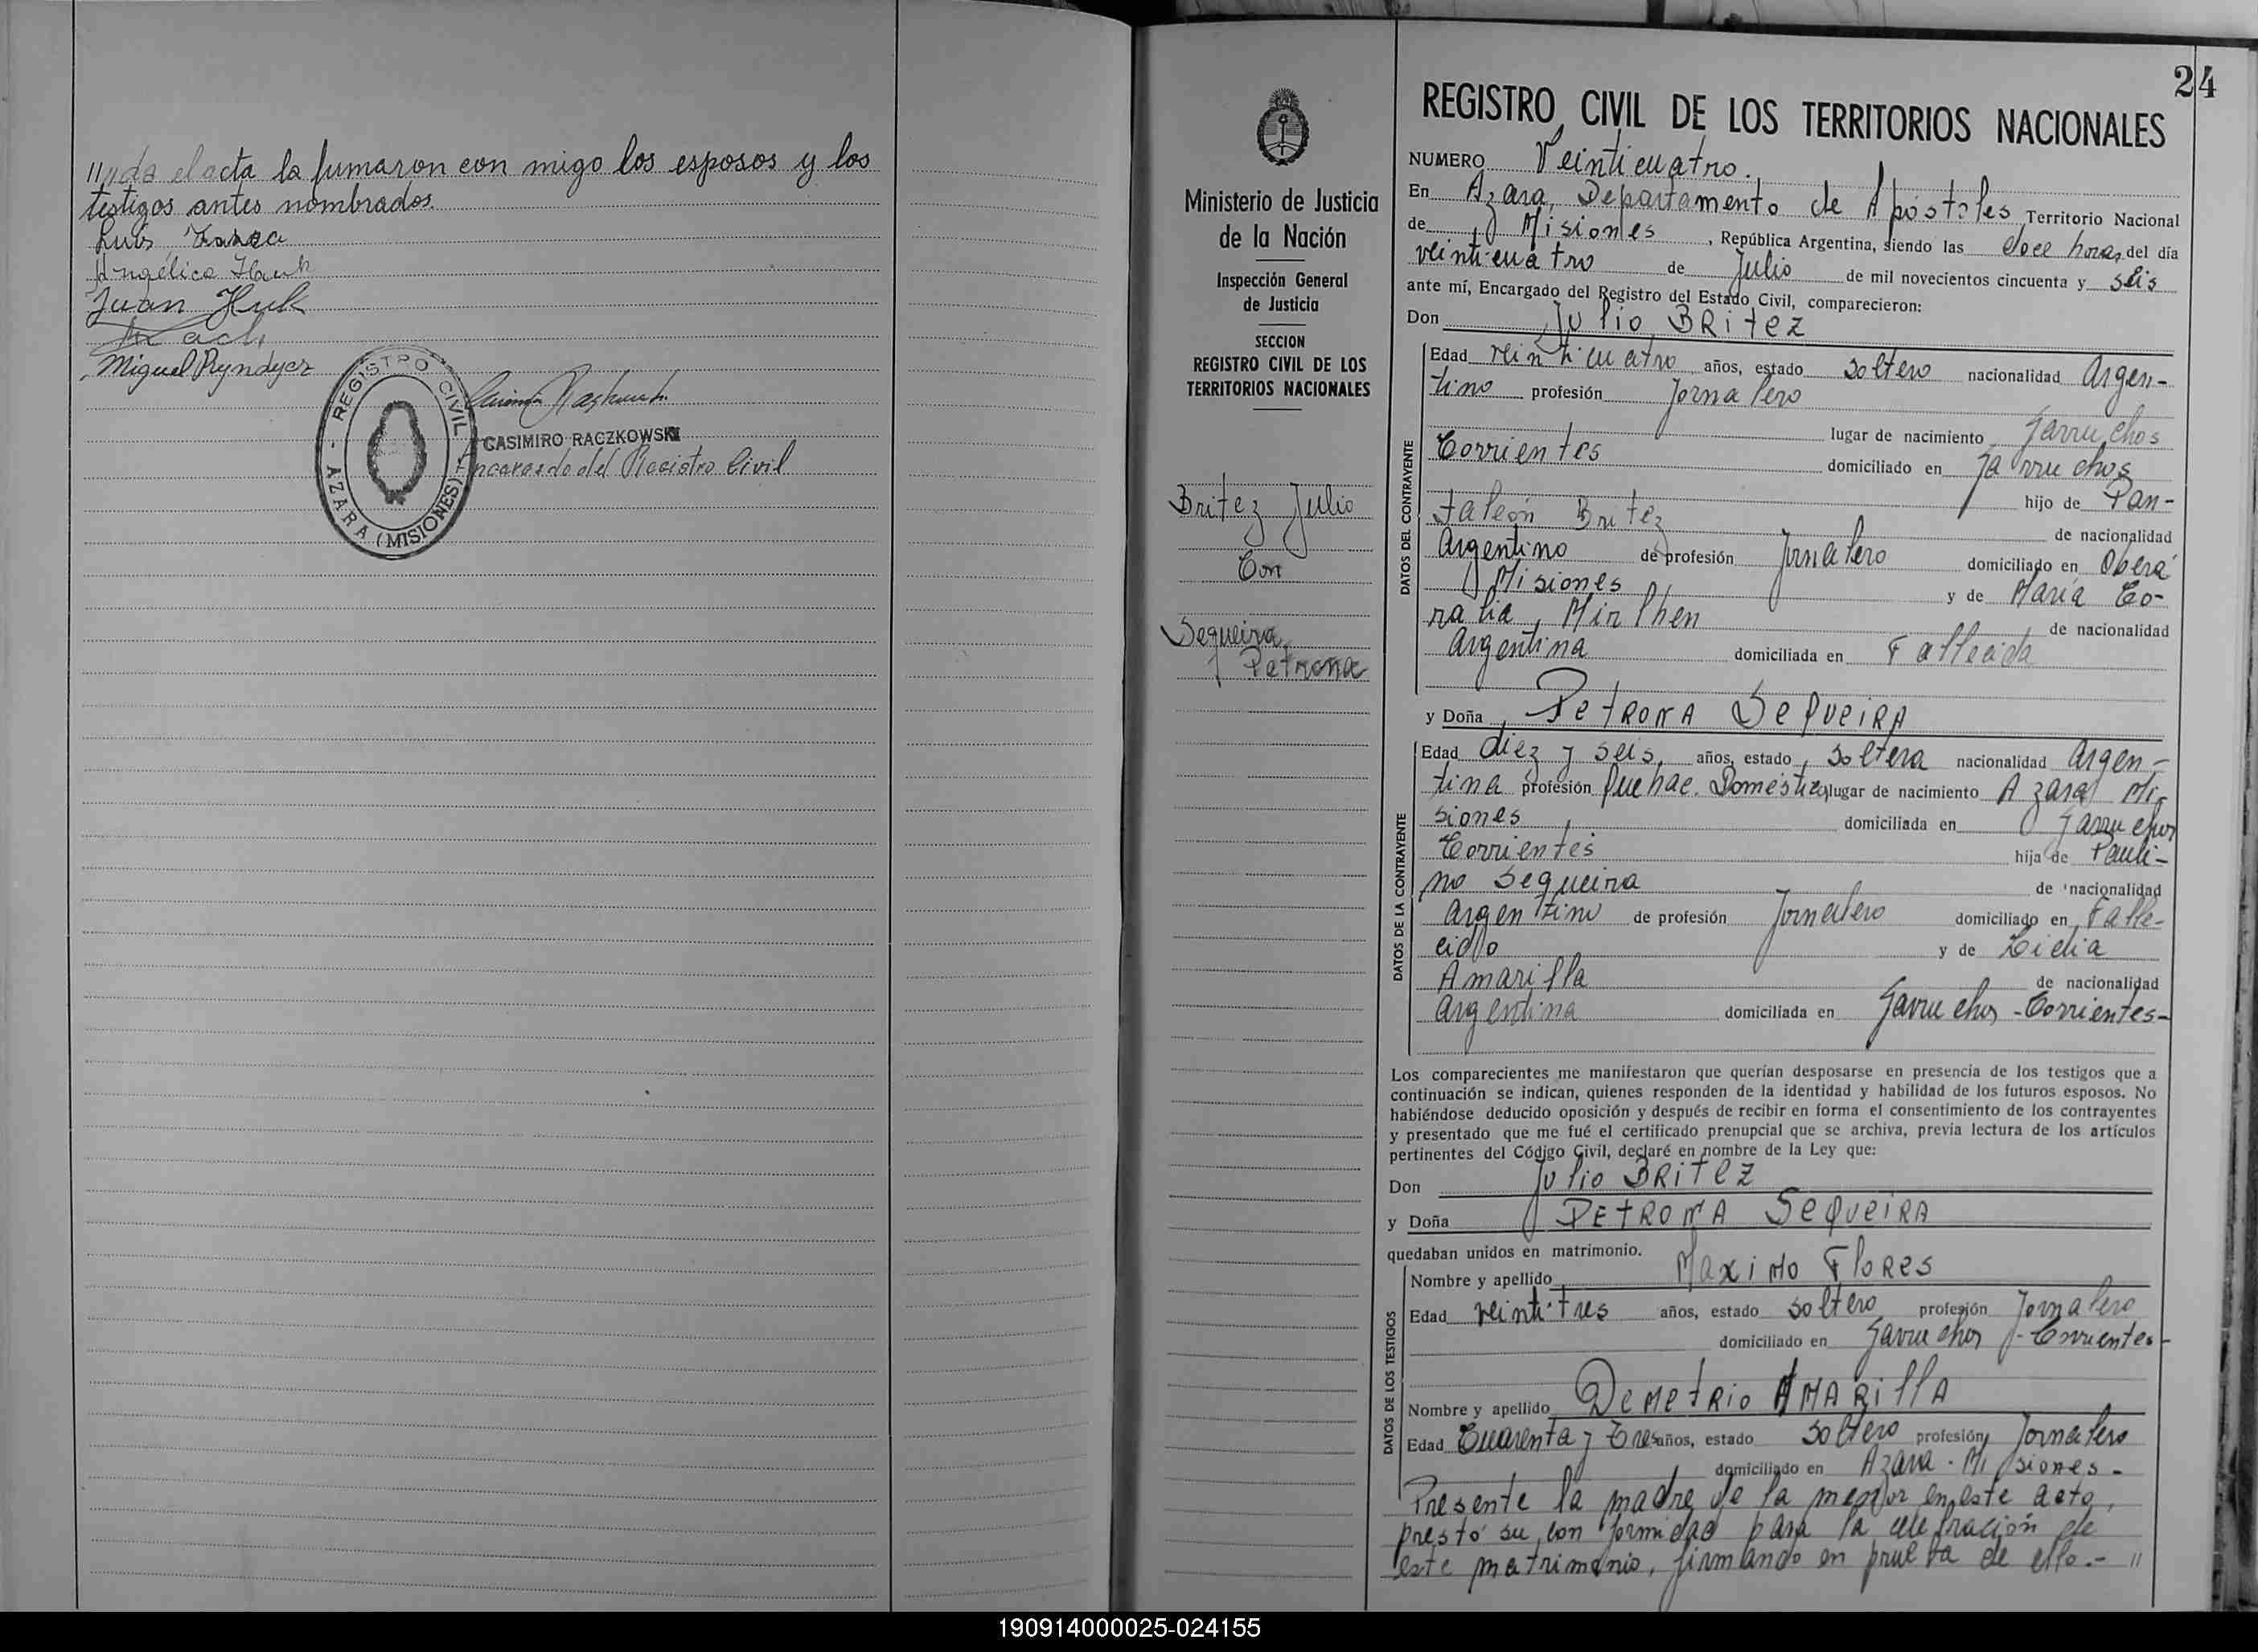 da el acta la firmaron con migo los esposos y los
testigos antes nombrados.
Luis
Angélica Hauk
Juan Huk
Miguel Ryndycz
REGISTRO CIVIL
AZARA (MISIONES)
CASIMIRO RACZKOWSKI
Encargado del Registro Civil
24
Ministerio de Justicia
de la Nación
Inspección General
de Justicia
SECCION
REGISTRO CIVIL DE LOS
TERRITORIOS NACIONALES
Britez Julio
Con
Sequeira
Petrona
REGISTRO CIVIL DE LOS TERRITORIOS NACIONALES
NUMERO Veinticuatro.
En Azara, Departamento de Apóstoles Territorio Nacional
de Misiones, República Argentina, siendo las doce horas del día
veinticuatro de Julio de mil novecientos cincuenta y seis
ante mí, Encargado del Registro del Estado Civil, comparecieron:
Don Julio BRitez
DATOS DEL CONTRAYENTE
Edad veinticuatro años, estado soltero nacionalidad Argen-
tino profesión Jornalero
lugar de nacimiento Garruchos
Corrientes domiciliado en Garruchos
hijo de Pan-
taleón Britez de nacionalidad
Argentino de profesión Jornalero domiciliado en Oberá
Misiones y de María Co-
ralia, Mirlhen de nacionalidad
Argentina domiciliada en Fallecida
y Doña PetRoNA SeqveiRA
DATOS DE LA CONTRAYENTE
Edad diez y seis, años, estado, soltera nacionalidad Argen-
tina profesión Quehac. Doméstico lugar de nacimiento Azara Mi-
siones, domiciliada en Garruchos
Corrientes hija de Pauli-
no Sequeira de nacionalidad
Argentino de profesión Jornalero domiciliado en Falle-
cido y de Lidia
Amarilla de nacionalidad
Argentina domiciliada en Garruchos - Corrientes-
Los comparecientes me manifestaron que querían desposarse en presencia de los testigos que a
continuación se indican, quienes responden de la identidad y habilidad de los futuros esposos. No
habiéndose deducido oposición y después de recibir en forma el consentimiento de los contrayentes
y presentado que me fué el certificado prenupcial que se archiva, previa lectura de los artículos
pertinentes del Código Civil, declaré en nombre de la Ley que:
Don Julio BRitez
y Doña PETRONA SeqveiRA
quedaban unidos en matrimonio.
DATOS DE LOS TESTIGOS
Nombre y apellido Maximo Flores
Edad veinti-tres años, estado soltero profesión Jornalero
domiciliado en Garruchos - Corrientes-
Nombre y apellido DemetRio AMARillA
Edad Cuarenta y Tres años, estado soltero profesión Jornalero
domiciliado en Azara - Misiones -
Presente la madre de la menor en este acto,
prestó su conformidad para la celebración de
este matrimonio, firmando en prueba de ello.- "
190914000025-024155